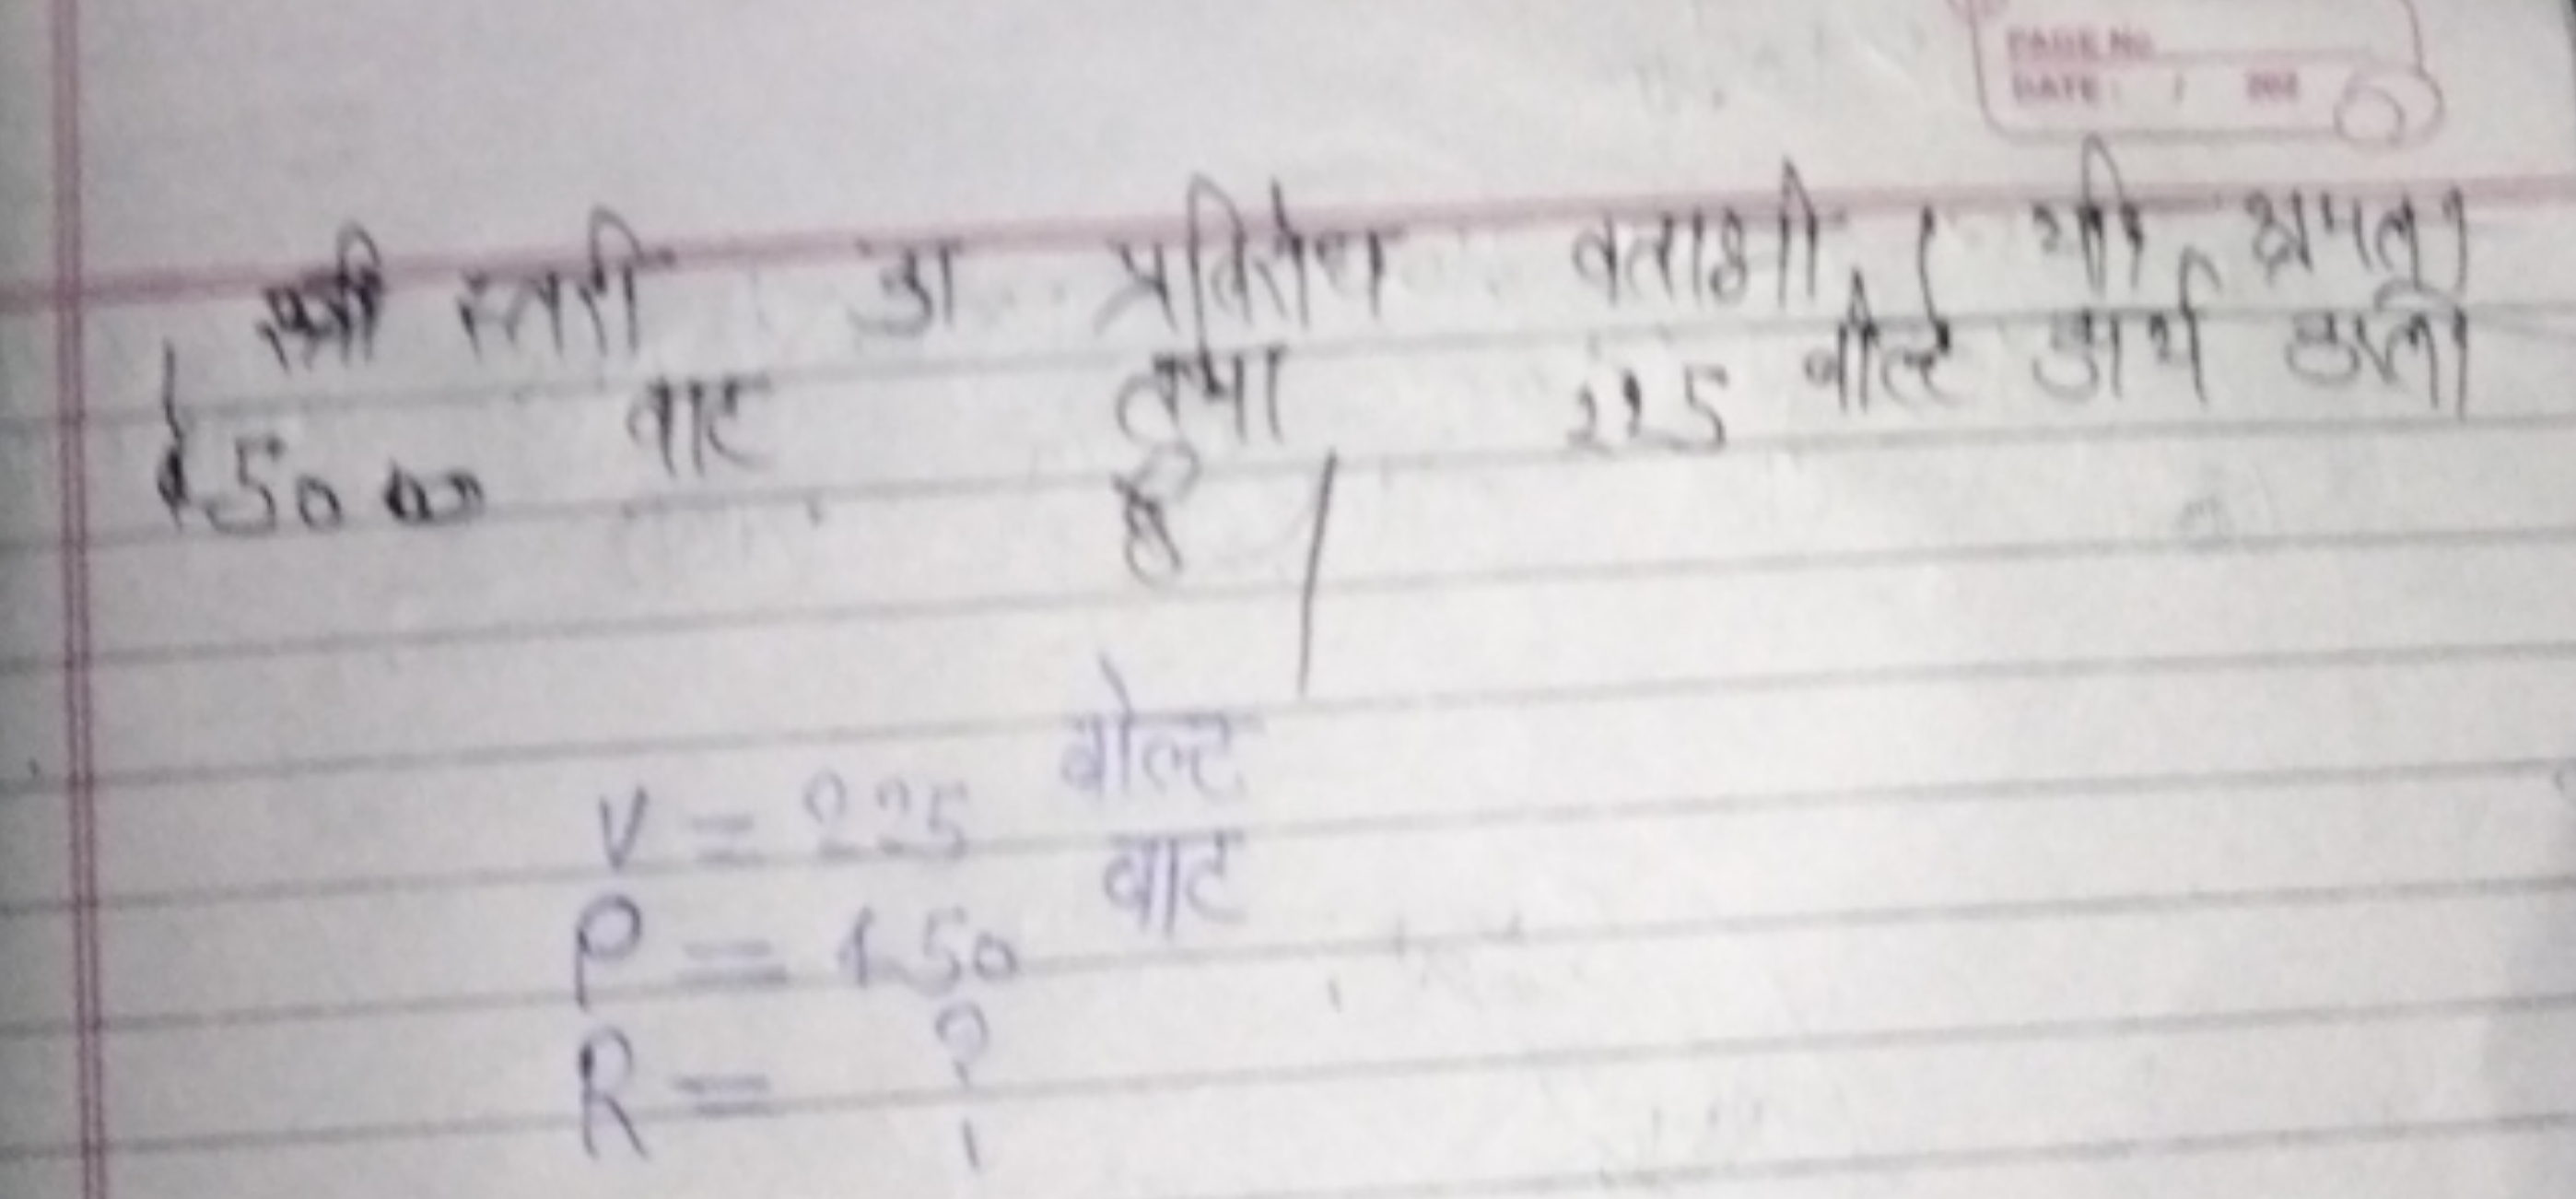 PAGE No.
DATE: / 202
स्तरी का प्रतिरोध बताओ । क्षमता
150 वाट तथा 225 वोल्ट कार्य
है |
V = 225 वोल्ट
P = 150 वाट
R = ?